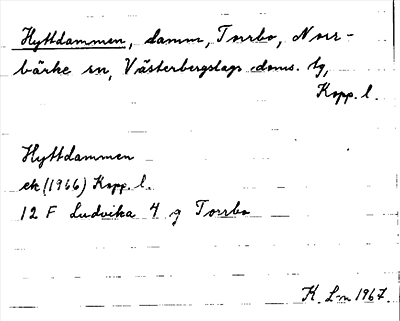 Hyttdammen, damm, Torrbo, Norr-
bärke sn, Västerbergslags doms. tg,
Kopp. l.
Hyttdammen
ek (1966) Kopp. l.
12 F Ludvika 4 g Torrbo
K. L-n 1967.